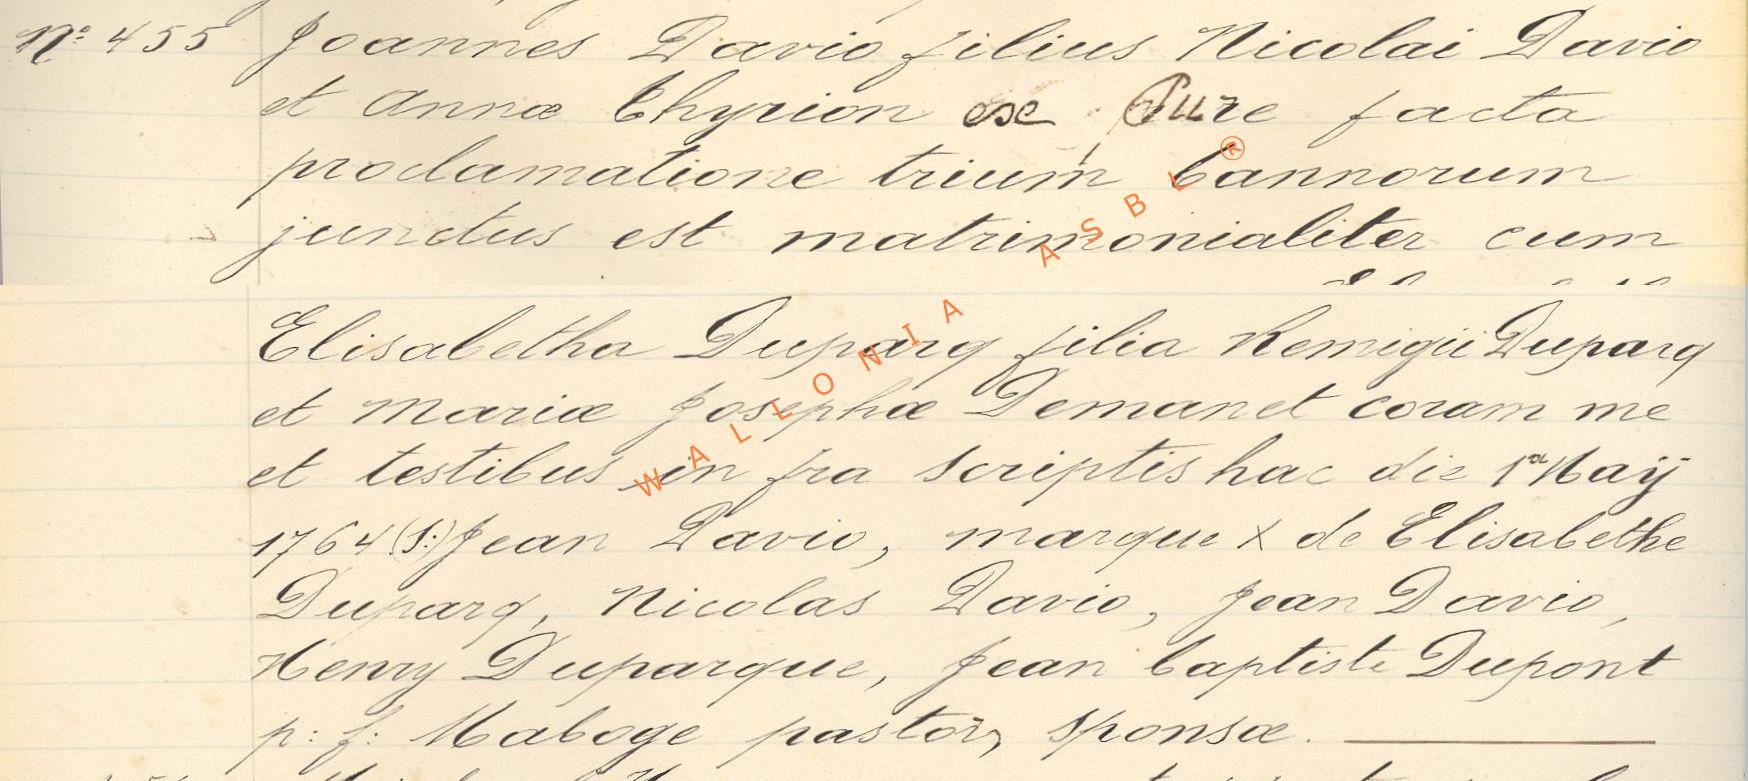 Nº 455 Joannes Davio filius Nicolai Davio
et Annæ Thyrion ex Pure facta
proclamatione trium bannorum
junctus est matrimonialiter cum
Elisabetha Duparq filia Remigii Duparq
et Mariæ Josephæ Demanet coram me
et testibus in fra scriptis hac die 1ª Maÿ
1764 (S:) Jean Davio, marque X de Elisabethe
Duparq, Nicolas Davio, Jean Davio,
Henry Duparque, Jean baptiste Dupont
p: f: Maboge pastor sponsæ.
WALLONIA ASBL ®